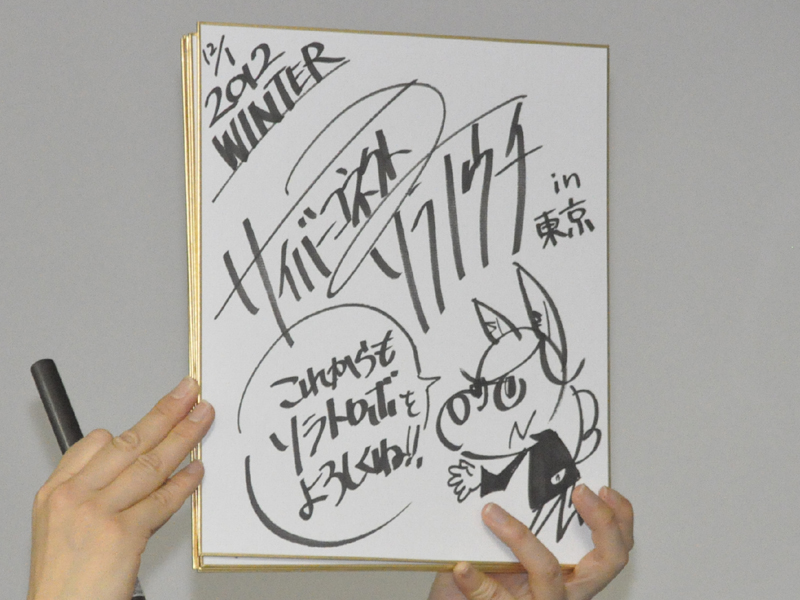 12/1
2012
WINTER
サイバーコネクト
ソフノウチ
in
東京
これからも
ソラトロボを
よろしくね!!